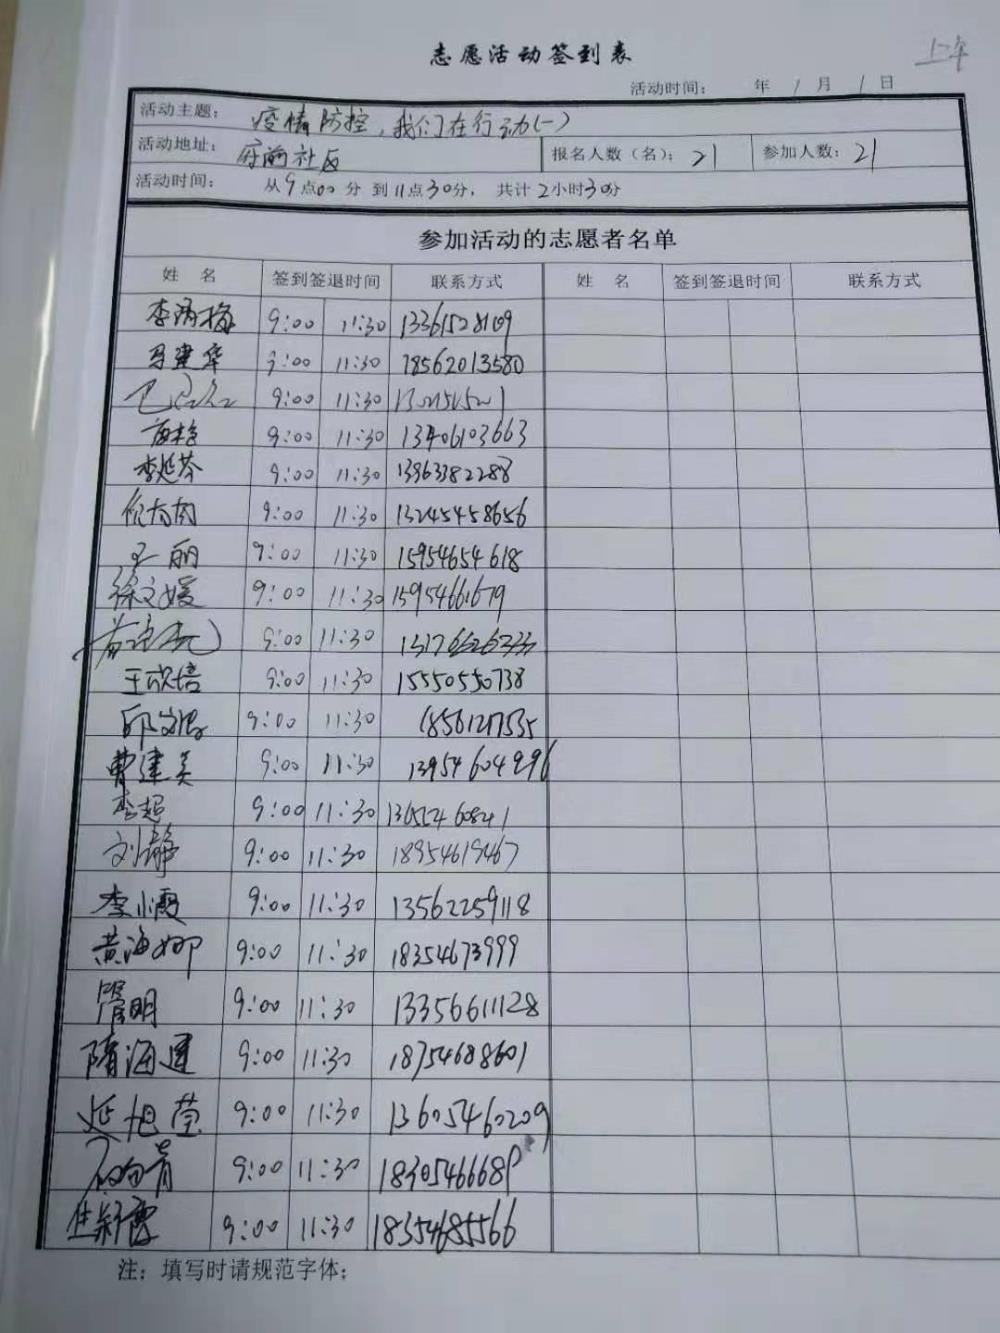 志愿活动签到表
上午
活动时间： 年 1 月 1 日
活动主题： 疫情防控，我们在行动(一)
活动地址： 府前社区 报名人数（名）：21 参加人数：21
活动时间： 从9点00分 到11点30分， 共计2小时30分
参加活动的志愿者名单
姓 名 签到签退时间 联系方式 姓 名 签到签退时间 联系方式
李海梅 9:00 11:30 13361528109
马建华 9:00 11:30 18562013580
9:00 11:30
9:00 11:30 13406103663
李延芬 9:00 11:30 13963382288
9:00 11:30 13245458656
王丽 9:00 11:30 15954654618
徐文媛 9:00 11:30 15954661679
9:00 11:30
王欣培 9:00 11:30 15550550738
邱文 9:00 11:30 18561217535
曹建美 9:00 11:30 13954604296
李超 9:00 11:30
刘静 9:00 11:30 18954619467
李小霞 9:00 11:30 13562259118
黄海娜 9:00 11:30 18354673999
明 9:00 11:30 13356611128
隋海莲 9:00 11:30 18754688601
延旭莹 9:00 11:30 13605460209
9:00 11:30
9:00 11:30 18354685566
注：填写时请规范字体；